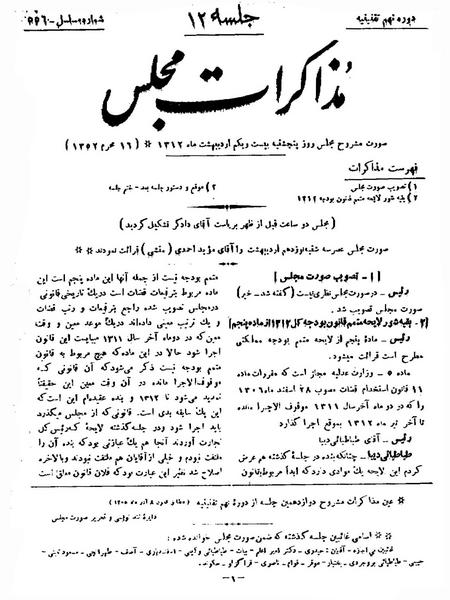 دوره نهم تقنینیه
جلسه ۱۲
شماره مسلسل
مذاکرات مجلس
صورت مشروح مجلس روز پنجشنبه بیست و یکم اردیبهشت ماه ۱۳۱۲ * (۱۶ محرم ۱۳۵۲)
فهرست مذاکرات
۱) تصویب صورت مجلس
۲) بقیه شور لایحه متمم قانون بودجه ۱۳۱۲
۳) موقع و دستور جلسه بعد - ختم جلسه
(مجلس دو ساعت قبل از ظهر بریاست آقای دادگر تشکیل گردید)
صورت مجلس سه شنبه نوزدهم اردیبهشت را آقای مؤید احمدی (منشی) قرائت نمودند
[۱- تصویب صورت مجلس]
رئیس - در صورت مجلس نظری نیست (گفته شد - خیر)
صورت مجلس تصویب شد.
[۲- بقیه شور لایحه متمم قانون بودجه کل ۱۳۱۲ از ماده پنجم]
رئیس - مادۀ پنجم از لایحه متمم بودجه مملکتی
مطرح است قرائت میشود.
ماده ۵ - وزارت عدلیه مجاز است که مقررات ماده
۱۱ قانون استخدام قضات مصوب ۲۸ اسفند ماه ۱۳۰۶
را که در دو ماه آخر سال ۱۳۱۱ موقوف الاجرا مانده
تا آخر تیر ماه ۱۳۱۲ بموقع اجرا گذارد
رئیس - آقای طباطبائی دیبا
طباطبائی دیبا - چنانکه بنده در جلسه گذشته هم عرض
کردم این لایحه یک موادی دارد که ابداً مربوط بقانون
متمم بودجه نیست از جمله آنها این ماده پنجم است این
ماده مربوط بترفیعات قضات است در یک تاریخی قانونی
در مجلس تصویب شده راجع بترفیعات و رتب قضات
و یک ترتیب معینی داده‌اند در یک موعد معین و وقت
معین که در دو ماه آخر سال ۱۳۱۱ میبایست این قانون
اجرا شود حالا در این ماده که هیچ مربوط به قانون
متمم بودجه نیست ذکر می‌شود که آن قانونی که
موقوف الاجرا مانده در آن وقت معین این حقیقتاً
تمدید می‌شود تا ۱۳۱۲ و بنده عقیده‌ام این است که
این یک سابقه بدی است. قانونی که از مجلس میگذرد
باید اجرا شود ودر جلسه گذشته لایحۀ
تجارت آوردند آنجا هم یک عبارتی بود که بنده آن را
ملتفت نبودم و خیلی از آقایان هم ملتفت نبودند و بالاخره
اصلاح شد نظیر این عبارت بود که فلان قانون ملغی است
* عین مذاکرات مشروح دوازدهمین جلسه از دورۀ نهم تقنینیه
دایرۀ تند نویسی و تحریر صورت مجلس
* اسامی غائبین جلسه گذشته که ضمن صورت مجلس خوانده شده:
-۱-